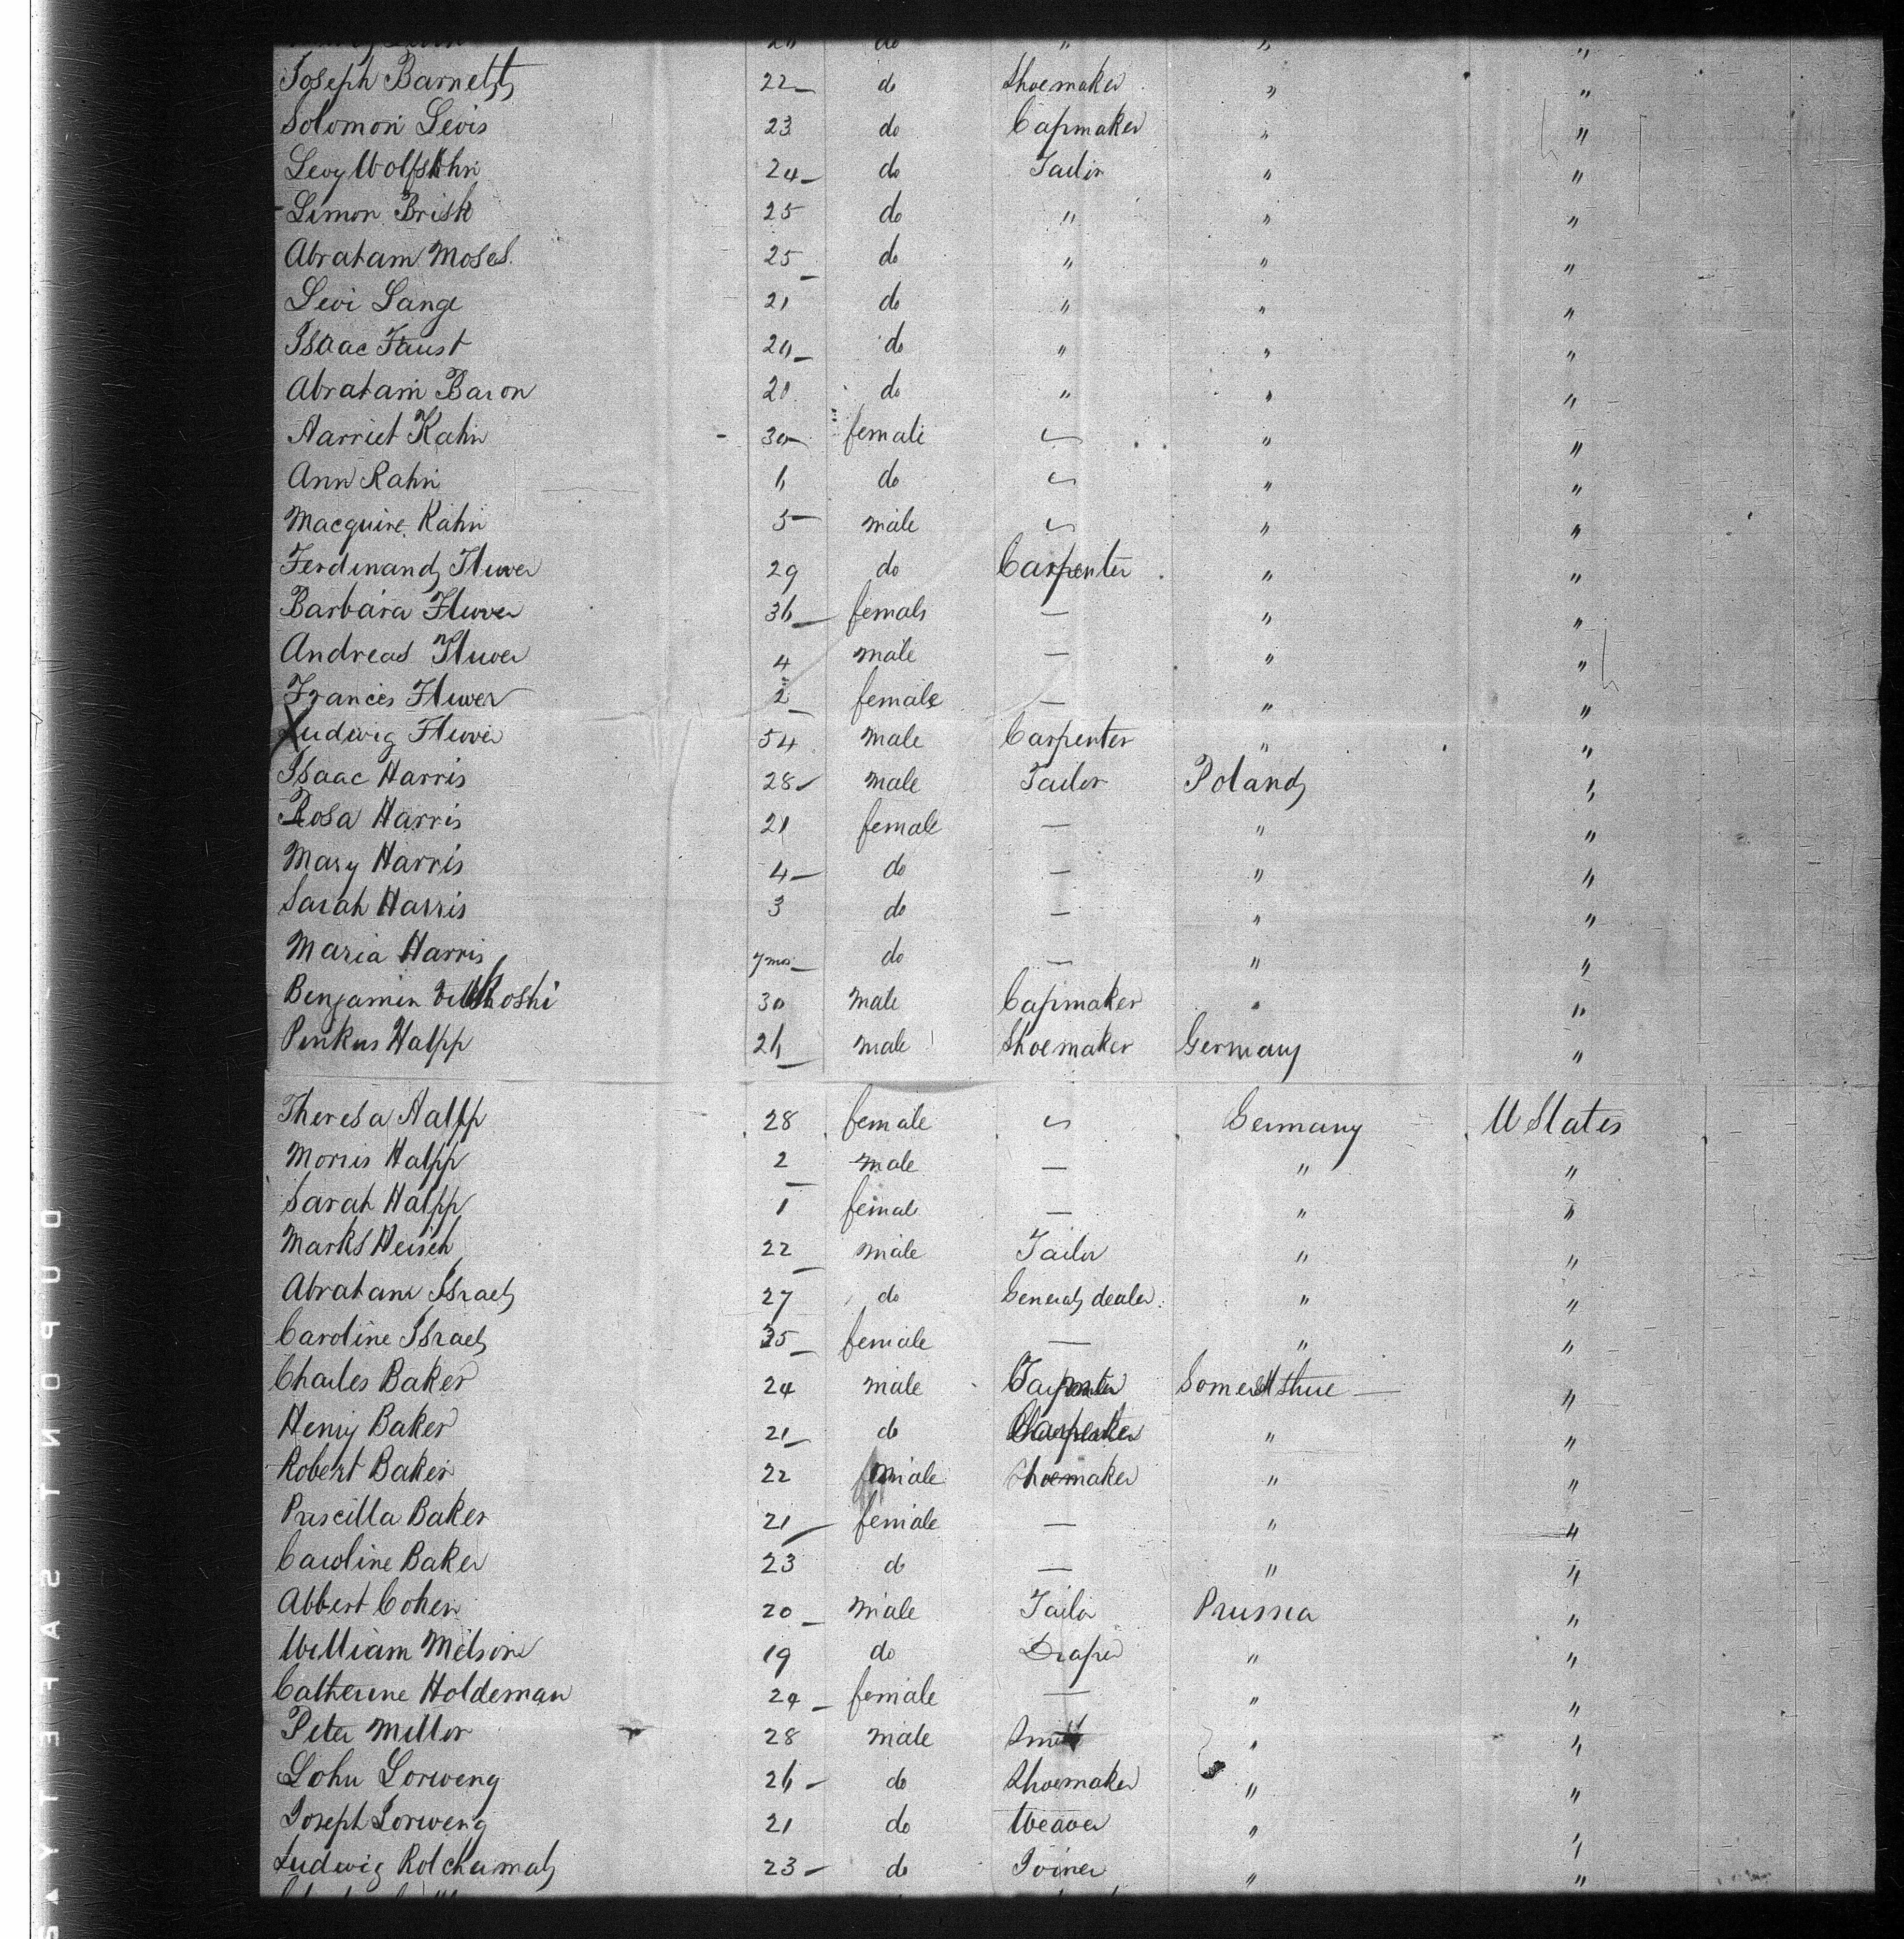 20 do " " "
Joseph Barnett 22 do Shoemaker " "
Solomon Levis 23 do Capmaker " "
Levy Wolfsohn 24 do Tailor " "
Simon Brisk 25 do " " "
Abraham Moses 25 do " " "
Levi Lange 21 do " " "
Isaac Faust 20 do " " "
Abraham Baron 20 do " " "
Harriet Kahn 30 female " "
Ann Kahn 6 do " "
Macguire Kahn 5 male " "
Ferdinand Fluver 29 do Carpenter " "
Barbara Fluver 36 female — " "
Andreas Fluver 4 male — " "
Frances Fluver 2 female — " "
Ludwig Fluver 54 male Carpenter " "
Isaac Harris 28 male Tailor Poland "
Rosa Harris 21 female — " "
Mary Harris 4 do — " "
Sarah Harris 3 do — " "
Maria Harris 7mos do — " "
Benjamin 30 male Capmaker " "
Pinkus Halpp 26 male Shoemaker Germany "
Theresa Halpp 28 female Germany U States
Morris Halpp 2 male — " "
Sarah Halpp 1 female — " "
Marks Heisch 22 male Tailor " "
Abraham Israel 27 do General dealer " "
Caroline Israel 35 female — " "
Charles Baker 24 male Carpenter Somersetshire — "
Henry Baker 21 do Carpenter " "
Robert Baker 22 male Shoemaker " "
Priscilla Baker 21 female — " "
Caroline Baker 23 do — " "
Abbert Cohen 20 male Tailor Prussia "
William Melson 19 do Draper " "
Catherine Holdeman 24 female — " "
Peter Miller 28 male Smith " "
John Lorweng 26 do Shoemaker " "
Joseph Lorweng 21 do Weaver " "
Ludwig 23 do Joiner " "
DUPONT SAFETY